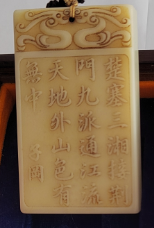 楚塞三湘接荊
門九派通江流
天地外山色有
無中
子岡